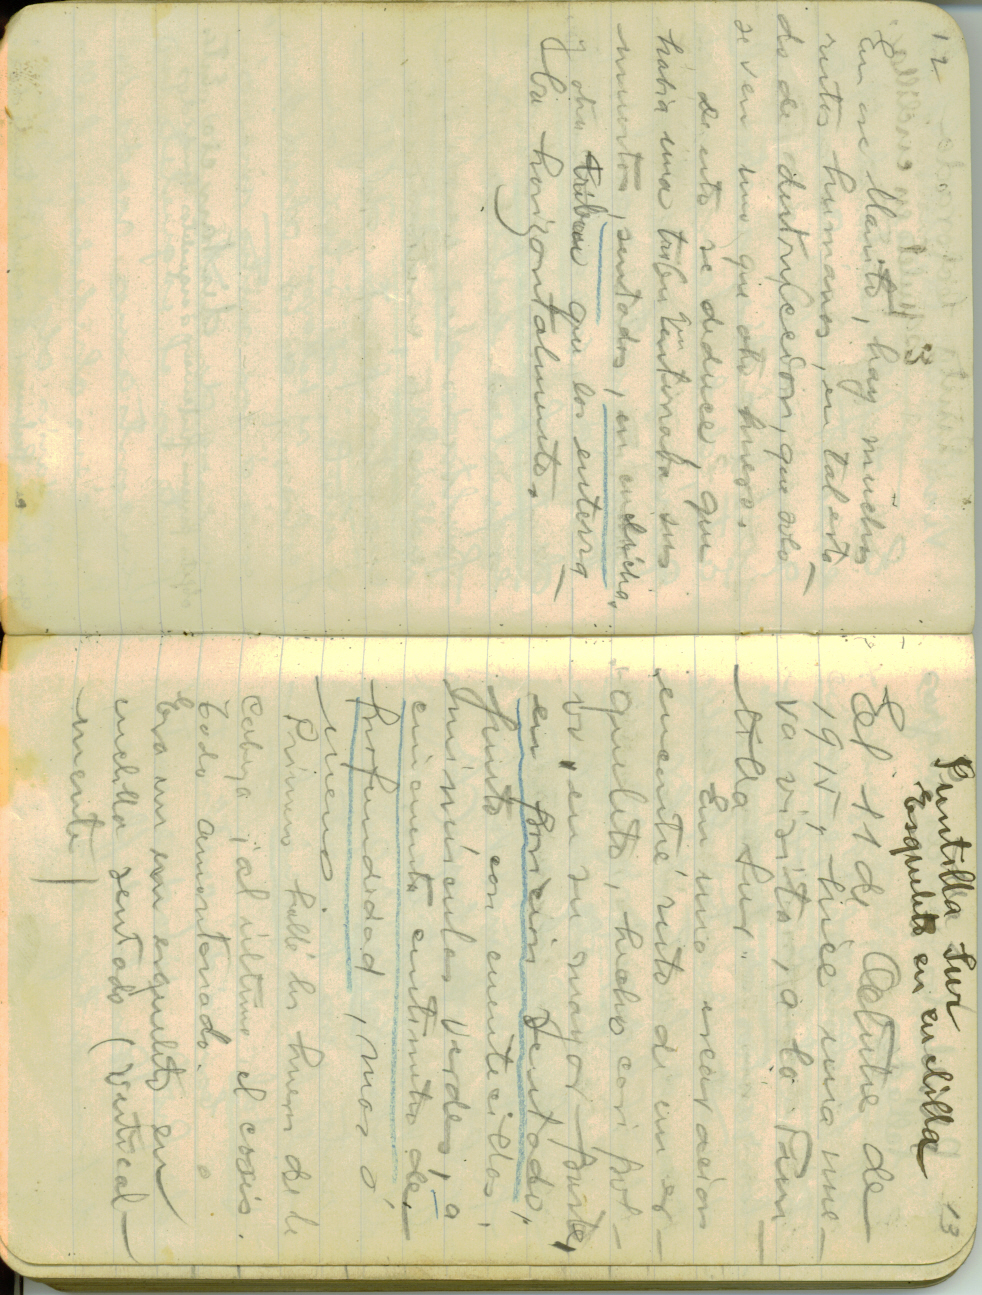 12
En ese llanito, hay muchos
restos humanos, en tal esta
do de destruccion, que solo
se ven uno que otro hueso.
De esto se deduce que
habia una tribu que enterraba sus
muertos, sentados, en cuclilla,
y otra tribu que los enterra
ba horizontalmente.
13
Puntilla Sur
Esqueleto en cuclilla
El 11 de Octubre de
1915, hice una nue-
va visita, a la Pun
tilla Sur.
En una excavacion
encontré resto de un es-
queleto, hecho casi pol-
vo, en su mayor parte,
en posicion sentado,
junto con cuentecillas,
minúsculas verdes, a
cincuenta centímetros de
profundidad, mas ó
menos
Primero hallé los huesos de la
cabeza i al último el coxis.
Todo amontonado.
Era un esqueleto en
cuclilla sentado (vertical-
mente)